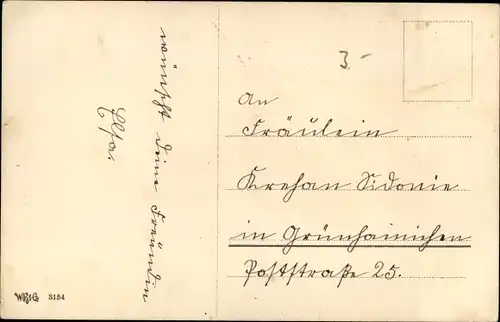 wünscht deine Freundin
Elsa.
3-
An
Fräulein
Krehan Sidonie
in Grünhainichen
Poststraße 25.
WR&G 3154